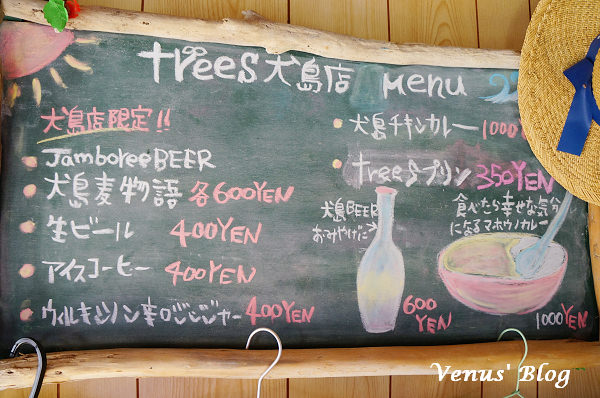 trees犬島店 MENU
犬島店限定!!
JamboreeBEER
犬島麦物語 各600YEN
生ビール 400YEN
アイスコーヒー 400YEN
ウィルキンソン辛口ジンジャー 400YEN
犬島チキンカレー 1000
treesプリン 350YEN
犬島BEER
おみやげに
600
YEN
食べたら幸せな気分
になるマホウノカレー
1000YEN
Venus' Blog